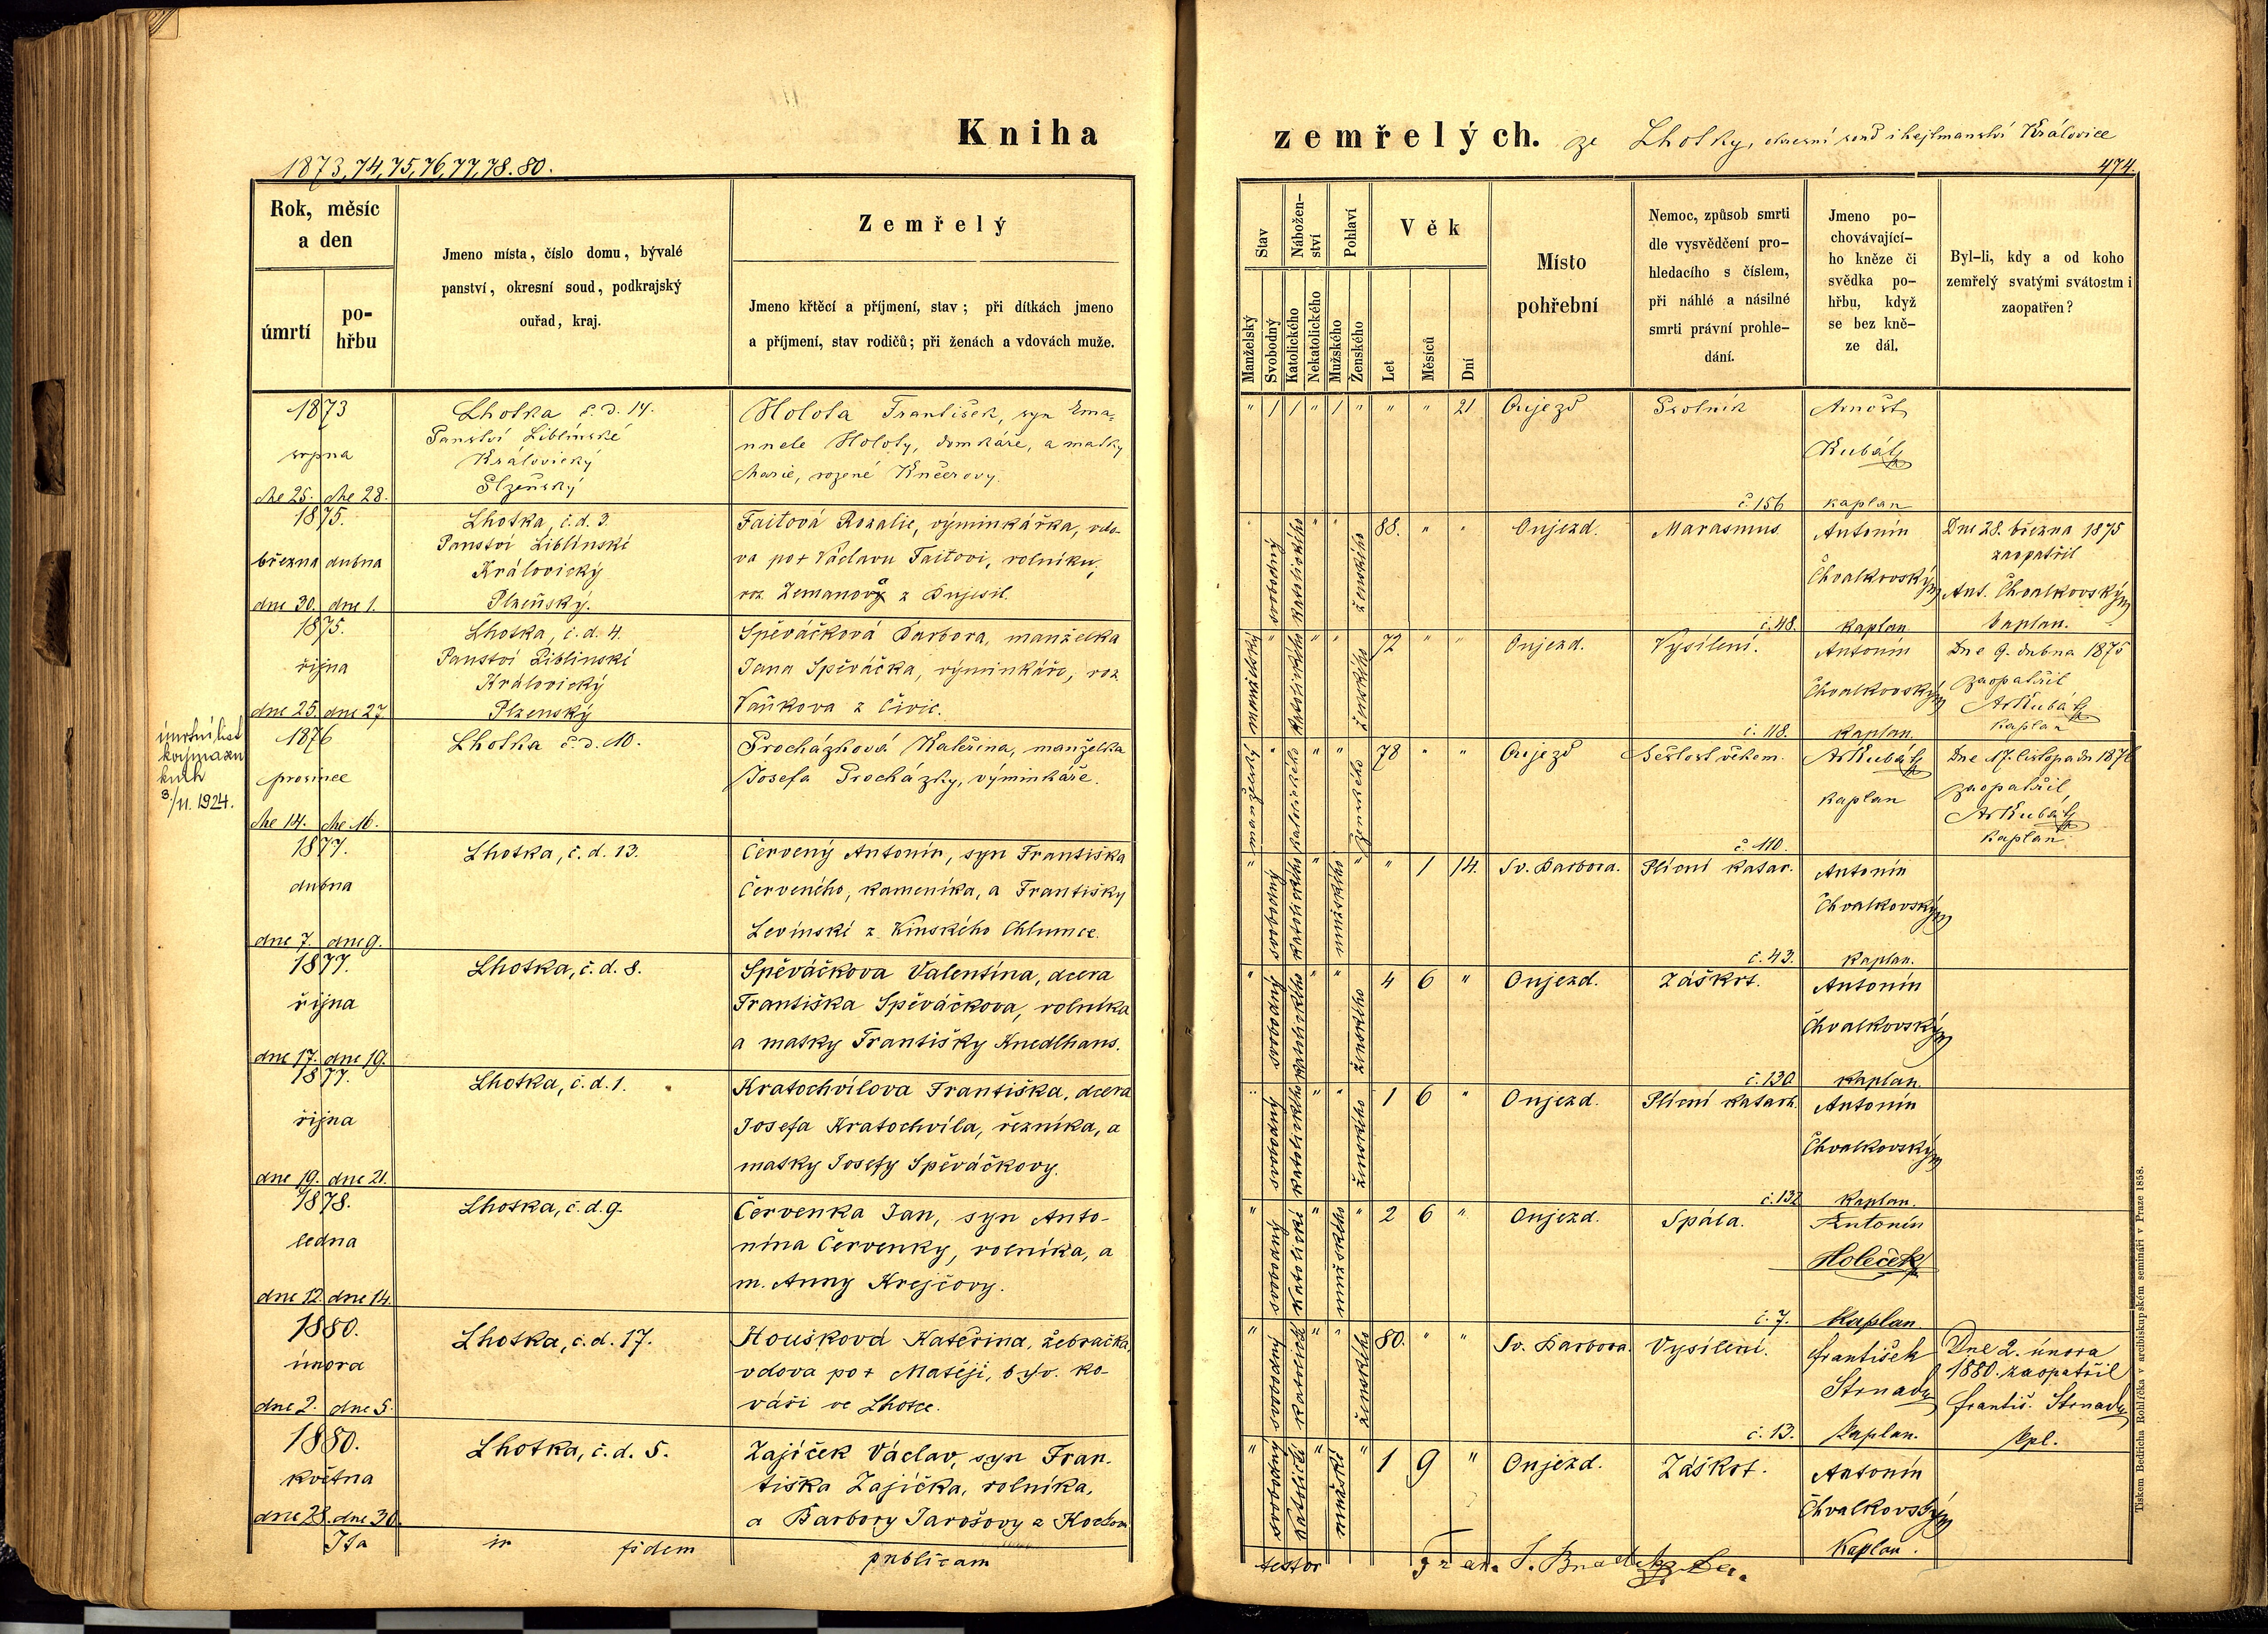 Kniha
zemřelých. ze Lhotky, okresní soud i hejtmanství Královice
1873, 74, 75, 76, 77, 78. 80.
474.
Rok, měsíc
a den
úmrtí
po-
hřbu
Jmeno místa, číslo domu, bývalé
panství, okresní soud, podkrajský
ouřad, kraj.
Zemřelý
Jmeno křtěcí a příjmení, stav; při dítkách jmeno
a příjmení, stav rodičů; při ženách a vdovách muže.
Stav
Manželský
Svobodný
Nábožen-
ství
Katolického
Nekatolického
Pohlaví
Mužského
Ženského
Věk
Let
Měsíců
Dní
Místo
pohřební
Nemoc, způsob smrti
dle vysvědčení pro-
hledacího s číslem,
při náhlé a násilné
smrti právní prohle-
dání.
Jmeno po-
chovávající-
ho kněze či
svědka po-
hřbu, když
se bez kně-
ze dál.
Byl-li, kdy a od koho
zemřelý svatými svátostmi
zaopatřen?
1873
srpna
dne 25. dne 28.
Lhotka č.d. 14.
Panství Liblínské
Královický
Plzeňský
Holota František, syn Ema-
nuele Holoty, domkáře, a matky
Marie, rozené Knéerovy.
" 1 1 " 1 " " " 21
Oujezd
Psotník
č. 156
Arnošt
Kubát
kaplan
1875.
března dubna
dne 30. dne 1.
Lhotka, č.d. 3.
Panství Liblínské
Královický
Plzeňský.
Faitová Rozalie, výminkářka, vdo-
va po † Václavu Faitovi, rolníku,
roz. Zemanová z Bujesil.
svobodný katolického " " ženského 88. " "
Oujezd.
Marasmus.
č. 48.
Antonín
Chvalkovský
kaplan
Dne 28. března 1875
zaopatřil
Ant. Chvalkovský
kaplan.
1875.
října
dne 25. dne 27.
Lhotka, č.d. 4.
Panství Liblinské
Královický
Plzenský
Spěváčková Barbora, manželka
Jana Spěváčka, výminkáře, roz.
Vaňkova z Čivic.
manželský " katolického " " ženského 72 " "
Oujezd.
Vysílení.
č. 118.
Antonín
Chvalkovský
kaplan.
Dne 9. dubna 1875
zaopatřil
Ar Kubát
kaplan
úmrtní list
3./11. 1924.
1876
prosince
dne 14. dne 16.
Lhotka č.d. 10.
Procházková Kateřina, manželka
Josefa Procházky, výminkáře.
manželský " katolického " " ženského 78 " "
Oujezd
Sešlost věkem.
č. 110.
Ar Kubát
kaplan
Dne 17. listopadu 1876
zaopatřil
Ar Kubát
kaplan
1877.
dubna
dne 7. dne 9.
Lhotka, č.d. 13.
Červený Antonín, syn Františka
Červeného, kameníka, a Františky
Levinské z Kinského Chlumce.
" svobodný katolického " mužského " " 1 14.
Sv. Barbora.
Plicní katar.
č. 43.
Antonín
Chvalkovský
kaplan.
1877.
října
dne 17. dne 19.
Lhotka, č.d. 8.
Spěváčkova Valentina, dcera
Františka Spěváčkova, rolníka
a matky Františky Knedlhans.
" svobodný katolického " " ženského 4 6 "
Oujezd.
Záškrt.
č. 130
Antonín
Chvalkovský
kaplan.
1877.
října
dne 19. dne 21.
Lhotka, č.d. 1.
Kratochvílova Františka, dcera
Josefa Kratochvíla, řezníka, a
matky Josefy Spěváčkovy.
" svobodný katolického " " ženského 1 6 "
Oujezd.
Plicní katarh.
č. 132
Antonín
Chvalkovský
kaplan.
1878.
ledna
dne 12. dne 14.
Lhotka, č.d. 9.
Červenka Jan, syn Anto-
nína Červenky, rolníka, a
m. Anny Krejčovy.
" svobodný katolické " mužského " 2 6 "
Oujezd.
Spála.
č. 7.
Antonín
Holeček
kaplan.
1880.
února
dne 2. dne 5.
Lhotka, č.d. 17.
Houšková Kateřina, žebračka,
vdova po † Matěji, býv. ko-
váři ve Lhotce.
" svobodný katolické " " ženského 80. " "
Sv. Barbora.
Vysílení.
č. 13.
František
Strnad
kaplan.
Dne 2. února
1880. zaopatřil
Františ. Strnad
kpl.
1880.
května
dne 28. dne 30.
Lhotka, č.d. 5.
Zajíček Václav, syn Fran-
tiška Zajíčka, rolníka,
a Barbory Jarošovy z
" svobodný katolické " mužské " 1 9 "
Oujezd.
Záškrt.
Antonín
Chvalkovský
kaplan.
Ita in fidem publicam testor
Tiskem Bedřicha Rohlíčka v arcibiskupském semináři v Praze 1858.